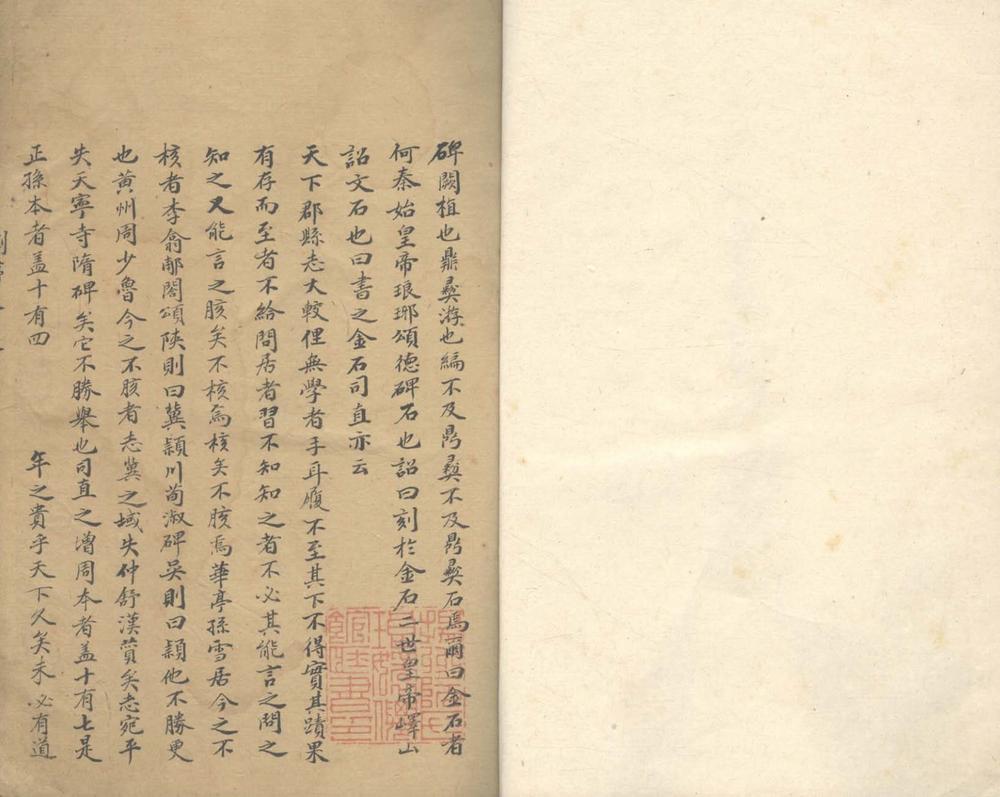 碑闕植也鼎彝游也編不及鼎彝不及鼎彝石焉爾曰金石者
何秦始皇帝琅琊頌德碑石也詔曰刻於金石二世皇帝嶧山
詔文石也曰書之金石司直亦云
天下郡縣志大較俚無學者手耳履不至其下不得實其蹟果
有存而至者不給問居者習不知知之者不必其能言之問之
知之又能言之賅矣不核焉核矣不賅焉華亭孫雪居今之不
核者李翕郙閣頌陝則曰冀潁川荀淑碑吳則曰潁他不勝更
也黃州周少魯今之不賅者志冀之域失仲舒漢贊矣志宛平
失天寧寺隋碑矣它不勝舉也司直之增周本者蓋十有七是
正孫本者蓋十有四　年之貴乎天下久矣未必有道